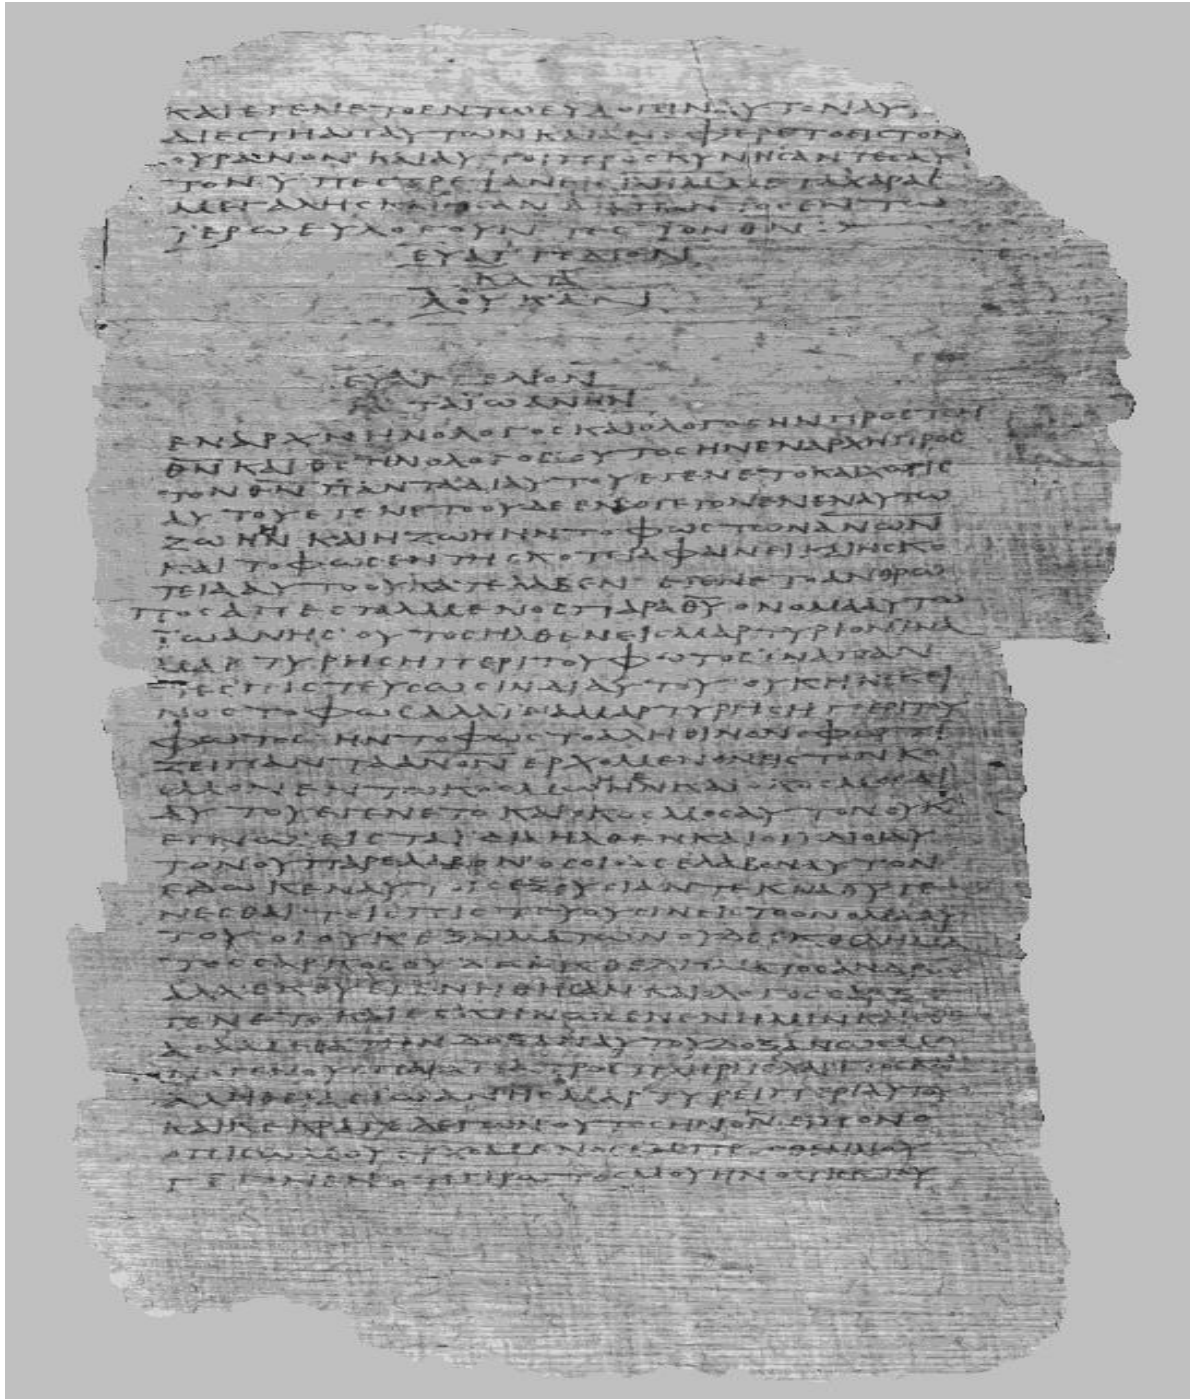 ΚΑΙΕΓΕΝΕΤΟΕΝΤΩΕΥΛΟΓΕΙΝΑΥΤΟΝΑΥ
ΔΙΕϹΤΗΑΠΑΥΤΩΝΚΑΙΑΝΕΦΕΡΕΤΟΕΙϹΤΟΝ
ΟΥΡΑΝΟΝ ΚΑΙΑΥΤΟΙΠΡΟϹΚΥΝΗϹΑΝΤΕϹΑΥ
ΤΟΝΥΠΕϹΤΡΕΨΑΝΕΙϹΙΛΗΜΜΕΤΑΧΑΡΑϹ
ΜΕΓΑΛΗϹΚΑΙΗϹΑΝΔΙΑΠΑΝΤΟϹΕΝΤΩ
ΪΕΡΩΕΥΛΟΓΟΥΝΤΕϹΤΟΝΘ̅Ν̅:
ΕΥΑΓΓΕΛΙΟΝ
ΚΑΤΑ
ΛΟΥΚΑΝ
ΕΥΑΓΓΕΛΙΟΝ
ΚΑΤΑΪΩΑΝΗΝ
ΕΝΑΡΧΗΗΝΟΛΟΓΟϹΚΑΙΟΛΟΓΟϹΗΝΠΡΟϹΤΟΝ
Θ̅Ν̅ΚΑΙΘ̅Ϲ̅ΗΝΟΛΟΓΟϹΟΥΤΟϹΗΝΕΝΑΡΧΗΠΡΟϹ
ΤΟΝΘ̅Ν̅ ΠΑΝΤΑΔΙΑΥΤΟΥΕΓΕΝΕΤΟΚΑΙΧΩΡΙϹ
ΑΥΤΟΥΕΓΕΝΕΤΟΟΥΔΕΕΝ ΟΓΕΓΟΝΕΝΕΝΑΥΤΩ
ΖΩΗΗΝ ΚΑΙΗΖΩΗΗΝΤΟΦΩϹΤΩΝΑ̅Ν̅Ω̅Ν̅
ΚΑΙΤΟΦΩϹΕΝΤΗϹΚΟΤΕΙΑΦΑΙΝΕΙΚΑΙΗϹΚΟ
ΤΕΙΑΑΥΤΟΟΥΚΑΤΕΛΑΒΕΝ ΕΓΕΝΕΤΟΑΝΘΡΩ
ΠΟϹΑΠΕϹΤΑΛΜΕΝΟϹΠΑΡΑΘ̅Υ̅ΟΝΟΜΑΑΥΤΩ
ΪΩΑΝΗϹ ΟΥΤΟϹΗΛΘΕΝΕΙϹΜΑΡΤΥΡΙΟΝΙΝΑ
ΜΑΡΤΥΡΗϹΗΠΕΡΙΤΟΥΦΩΤΟϹΙΝΑΠΑΝ
ΤΕϹΠΙϹΤΕΥϹΩϹΙΝΔΙΑΥΤΟΥ ΟΥΚΗΝΕΚΕΙ
ΝΟϹΤΟΦΩϹΑΛΛΙΝΑΜΑΡΤΥΡΗϹΗΠΕΡΙΤΟΥ
ΦΩΤΟϹ ΗΝΤΟΦΩϹΤΟΑΛΗΘΙΝΟΝΟΦΩΤΙ
ΖΕΙΠΑΝΤΑΑ̅Ν̅Ο̅Ν̅ΕΡΧΟΜΕΝΟΝΕΙϹΤΟΝΚΟ
ϹΜΟΝΕΝΤΩΚΟϹΜΩΗΝΚΑΙΟΚΟϹΜΟϹΔΙ
ΑΥΤΟΥΕΓΕΝΕΤΟ ΚΑΙΟΚΟϹΜΟϹΑΥΤΟΝΟΥΚ
ΕΓΝΩ ΕΙϹΤΑΙΔΙΑΗΛΘΕΝΚΑΙΟΙΙΔΙΟΙΑΥ
ΤΟΝΟΥΠΑΡΕΛΑΒΟΝ ΟϹΟΙΔΕΕΛΑΒΟΝΑΥΤΟΝ
ΕΔΩΚΕΝΑΥΤΟΙϹΕΞΟΥϹΙΑΝΤΕΚΝΑΘ̅Υ̅ΓΕ
ΝΕϹΘΑΙ ΤΟΙϹΠΙϹΤΕΥΟΥϹΙΝΕΙϹΤΟΟΝΟΜΑΑΥ
ΤΟΥ ΟΙΟΥΚΕΞΑΙΜΑΤΩΝΟΥΔΕΕΚΘΕΛΗΜΑ
ΤΟϹϹΑΡΚΟϹΟΥΔΕΕΚΘΕΛΗΜΑΤΟϹΑΝΔΡΟϹ
ΑΛΛΕΚΘ̅Υ̅ΕΓΕΝΗΘΗϹΑΝΚΑΙΟΛΟΓΟϹϹΑΡΞΕ
ΓΕΝΕΤΟΚΑΙΕϹΚΗΝΩϹΕΝΕΝΗΜΙΝΚΑΙΕΘΕ
ΑϹΑΜΕΘΑΤΗΝΔΟΞΑΝΑΥΤΟΥΔΟΞΑΝΩϹΜΟ
ΝΟΓΕΝΟΥϹΠΑΡΑΠΑΤΡΟϹΠΛΗΡΗϹΧΑΡΙΤΟϹΚΑΙ
ΑΛΗΘΕΙΑϹΙΩΑΝΗϹΜΑΡΤΥΡΕΙΠΕΡΙΑΥΤΟΥ
ΚΑΙΚΕΚΡΑΓΕΛΕΓΩΝΟΥΤΟϹΗΝΟΝΕΙΠΟΝΟ
ΟΠΙϹΩΜΟΥΕΡΧΟΜΕΝΟϹΕΜΠΡΟϹΘΕΝΜΟΥ
ΓΕΓΟΝΕΝΟΤΙΠΡΩΤΟϹΜΟΥΗΝΟΤΙΕΚΤΟΥ